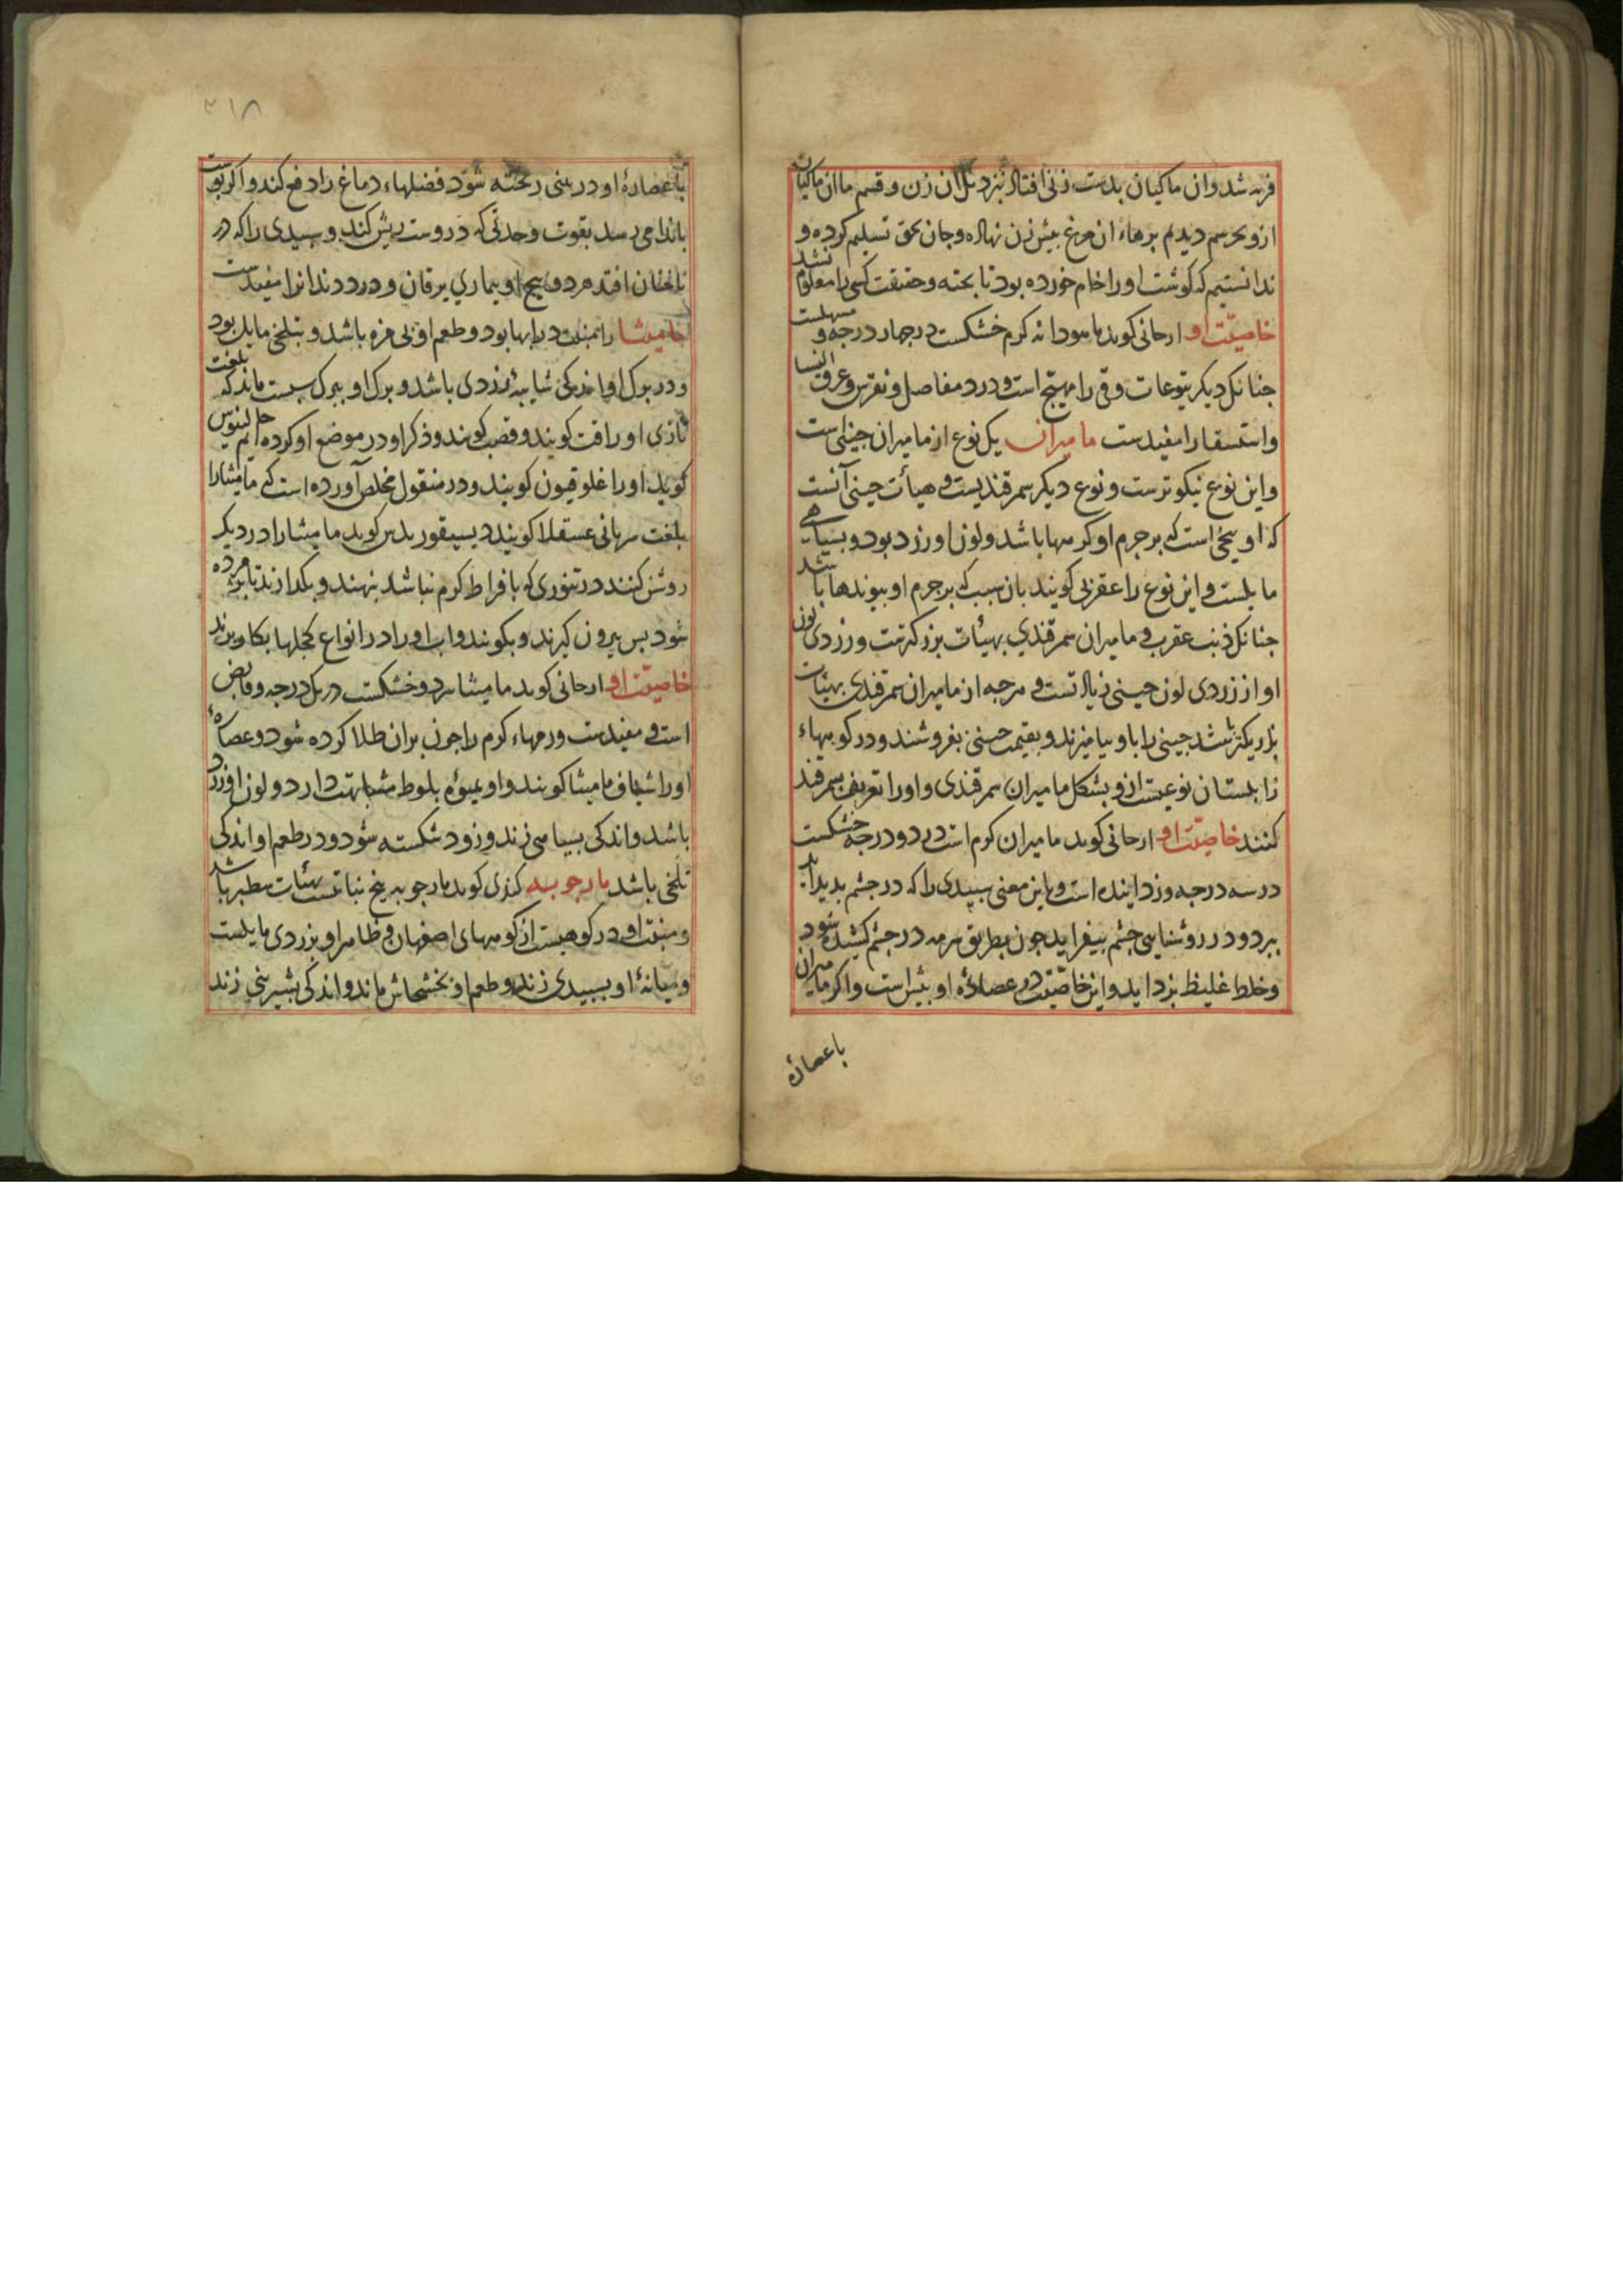 فربه شد وان ماکیان بدست زنی افتاد نزدیک ان زن و قسم ما ان ماکیان
ازو بخرسم دیدم برهاء ان مرغ بیش زن نهاده و جان بحق تسلیم کرده و
ندانستیم که کوشت او را خام خورده بود تا بخته و حقیقت کسی را معلوم نشد
خاصیّت او ارحانی کوید ماهودانه کرم خشکست در چهار درجه و مسهلست
جنانک دیکر یتوعات و قی را مهیّج است و درد مفاصل و نقرس و عرق النسا
و استسقا را مفیدست مامیران یک نوع از مامیران جینی است
و این نوع نیکوترست و نوع دیکر سمرقندیست و هیأت جینی آنست
که او بیخی است که بر جرم او کرهها باشد و لون او زرد بود و بسیاهی
مایلست و این نوع را عقربی کویند بان سبب که بر جرم او بیوندها باشد
جنانک ذنب عقرب و مامیران سمرقندی بهیئات بزرکترست و زردی لون
او از زردی لون جینی زیادتست و هرجه از مامیران سمرقندی بهیئات
باریکتر باشد جینی را با او بیامیزند و بقیمت جینی بفروشند و در کوههاء
زابلستان نوعیست ازو بشکل مامیران سمرقندی و او را تعریف بسمرقند
کنند خاصیّت او ارحانی کوید مامیران کرم است در دو درجه خشکست
در سه درجه و زداینده است و باین معنی سبیدی را که در جشم بدید اید
ببرد و در روشنایی جشم بیفزاید جون بطریق سرمه در جشم کشیده شود
و خلط غلیظ بزداید و این خاصّیّت در عصارهٔ او بیش است و اکر مامیران
با عصارهٔ
۲۱۸
با عصارهٔ او در بینی ریخته شود فضلهاء دماغ را دفع کند و اکر بوست
باندامی رسد بقوت و حدتی که دروست ریش کند و سبیدی را که در
ناخنان افتد ببرد و بیخ او بیماری یرقان و درد دندانرا مفیدست
مامیثا را منبت در ابها بود و طعم او بی مزه باشد و بتلخی مایل بود
و در برک او اندکی شایبهٔ زردی باشد و برک او ببرک سبست ماند که بلغت
تازی او را قت کویند و قصب کویند و ذکر او در موضع او کرده ایم جالینوس
کوید او را غلوقیون کویند و در منقول مخلص آورده است که مامیثا را
بلغت سریانی عسقلا کویند دیسقوریدس کوید مامیثا را در دیکر
روشن کنند در تنوری که بافراط کرم نباشد بنهند و بکدارند تا بزمرده
شود بس بیرون کیرند و بکوبند و اب او را در انواع کحلها بکار برند
خاصیّت او ارحانی کوید مامیثا سرد و خشکست در یک درجه و قابض
است و مفیدست ورمهاء کرم را جون بران طلا کرده شود و عصارهٔ
او را شیاف مامیثا کویند و او بمیوهٔ بلوط مشابهت دارد و لون او زرد
باشد و اندکی بسیاهی زند و زود شکسته شود و در طعم او اندکی
تلخی باشد مارجوبه کندی کوید مارجوبه بیخ نباتیست بهیئات سطبر باشد
و منبت او در کوهیست از کوههای اصفهان و ظاهر او بزردی مایلست
و میانهٔ او بسبیدی زند و طعم او بخشخاش ماند و اندکی بشیرینی زند